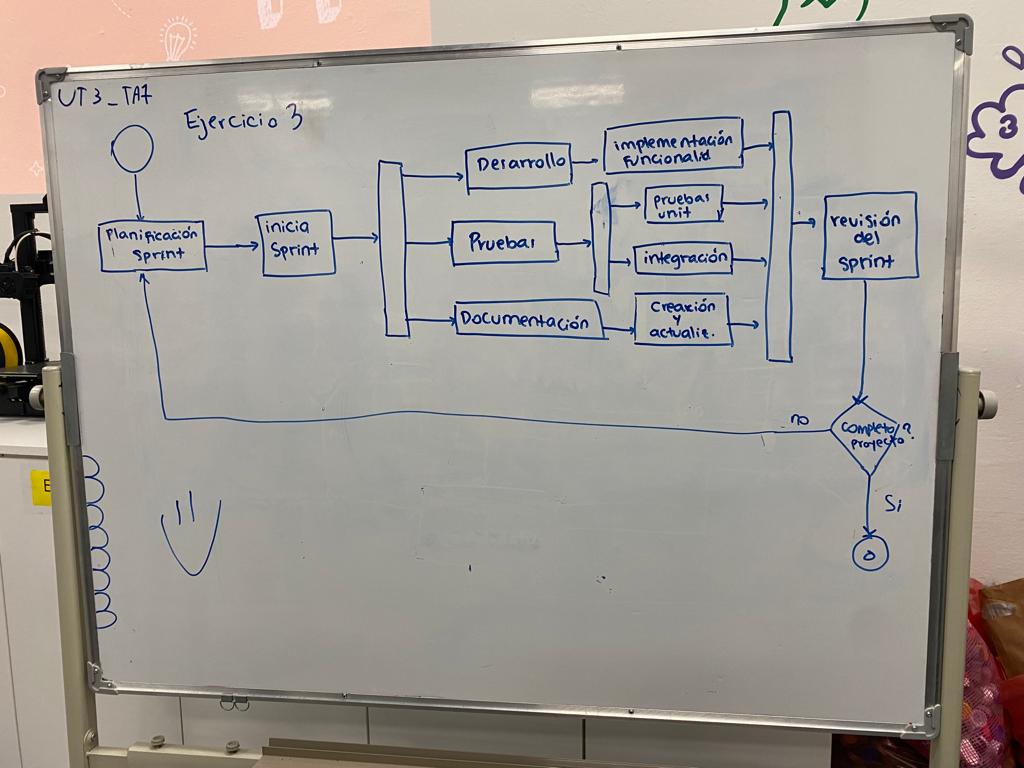 UT3_TA7
Ejercicio 3
Planificación
sprint
inicia
sprint
Desarrollo
implementación
funcionalid
Pruebas
pruebas
unit
integración
Documentación
Creación
y
actualiz.
revisión
del
sprint
completo?
proyecto
no
Si